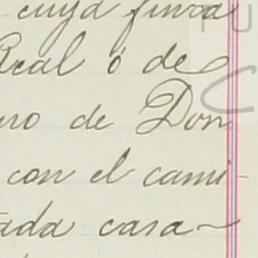 cuya finca
Real ó de
ro de Don
con el cami-
ada casa